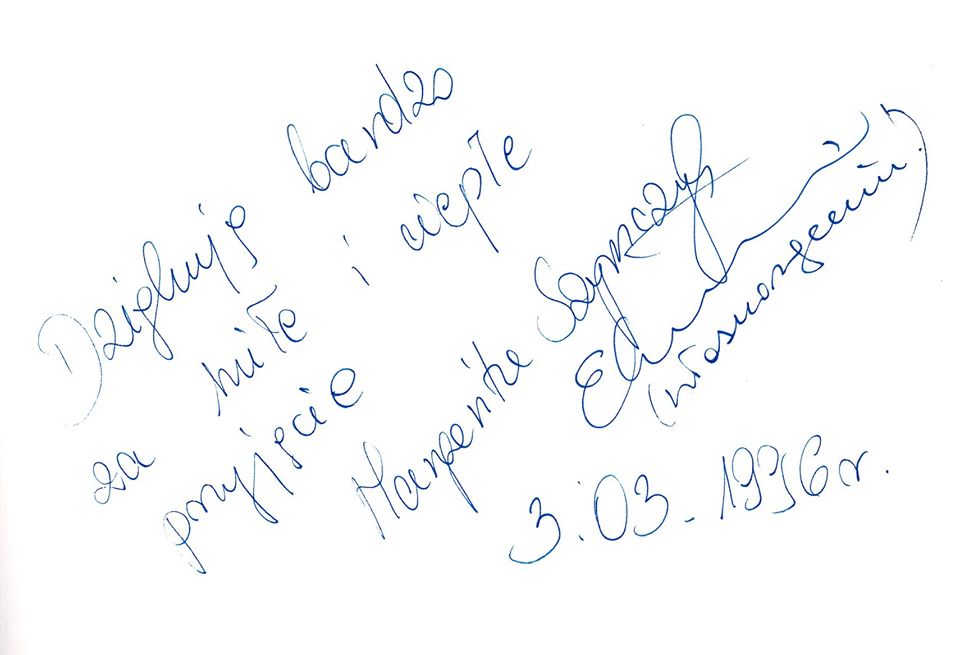 Dziękuję bardzo
za miłe i ciepłe
przyjęcie
Małgorzata Szymczyk
(własnoręcznie!)
3.03.1996 r.